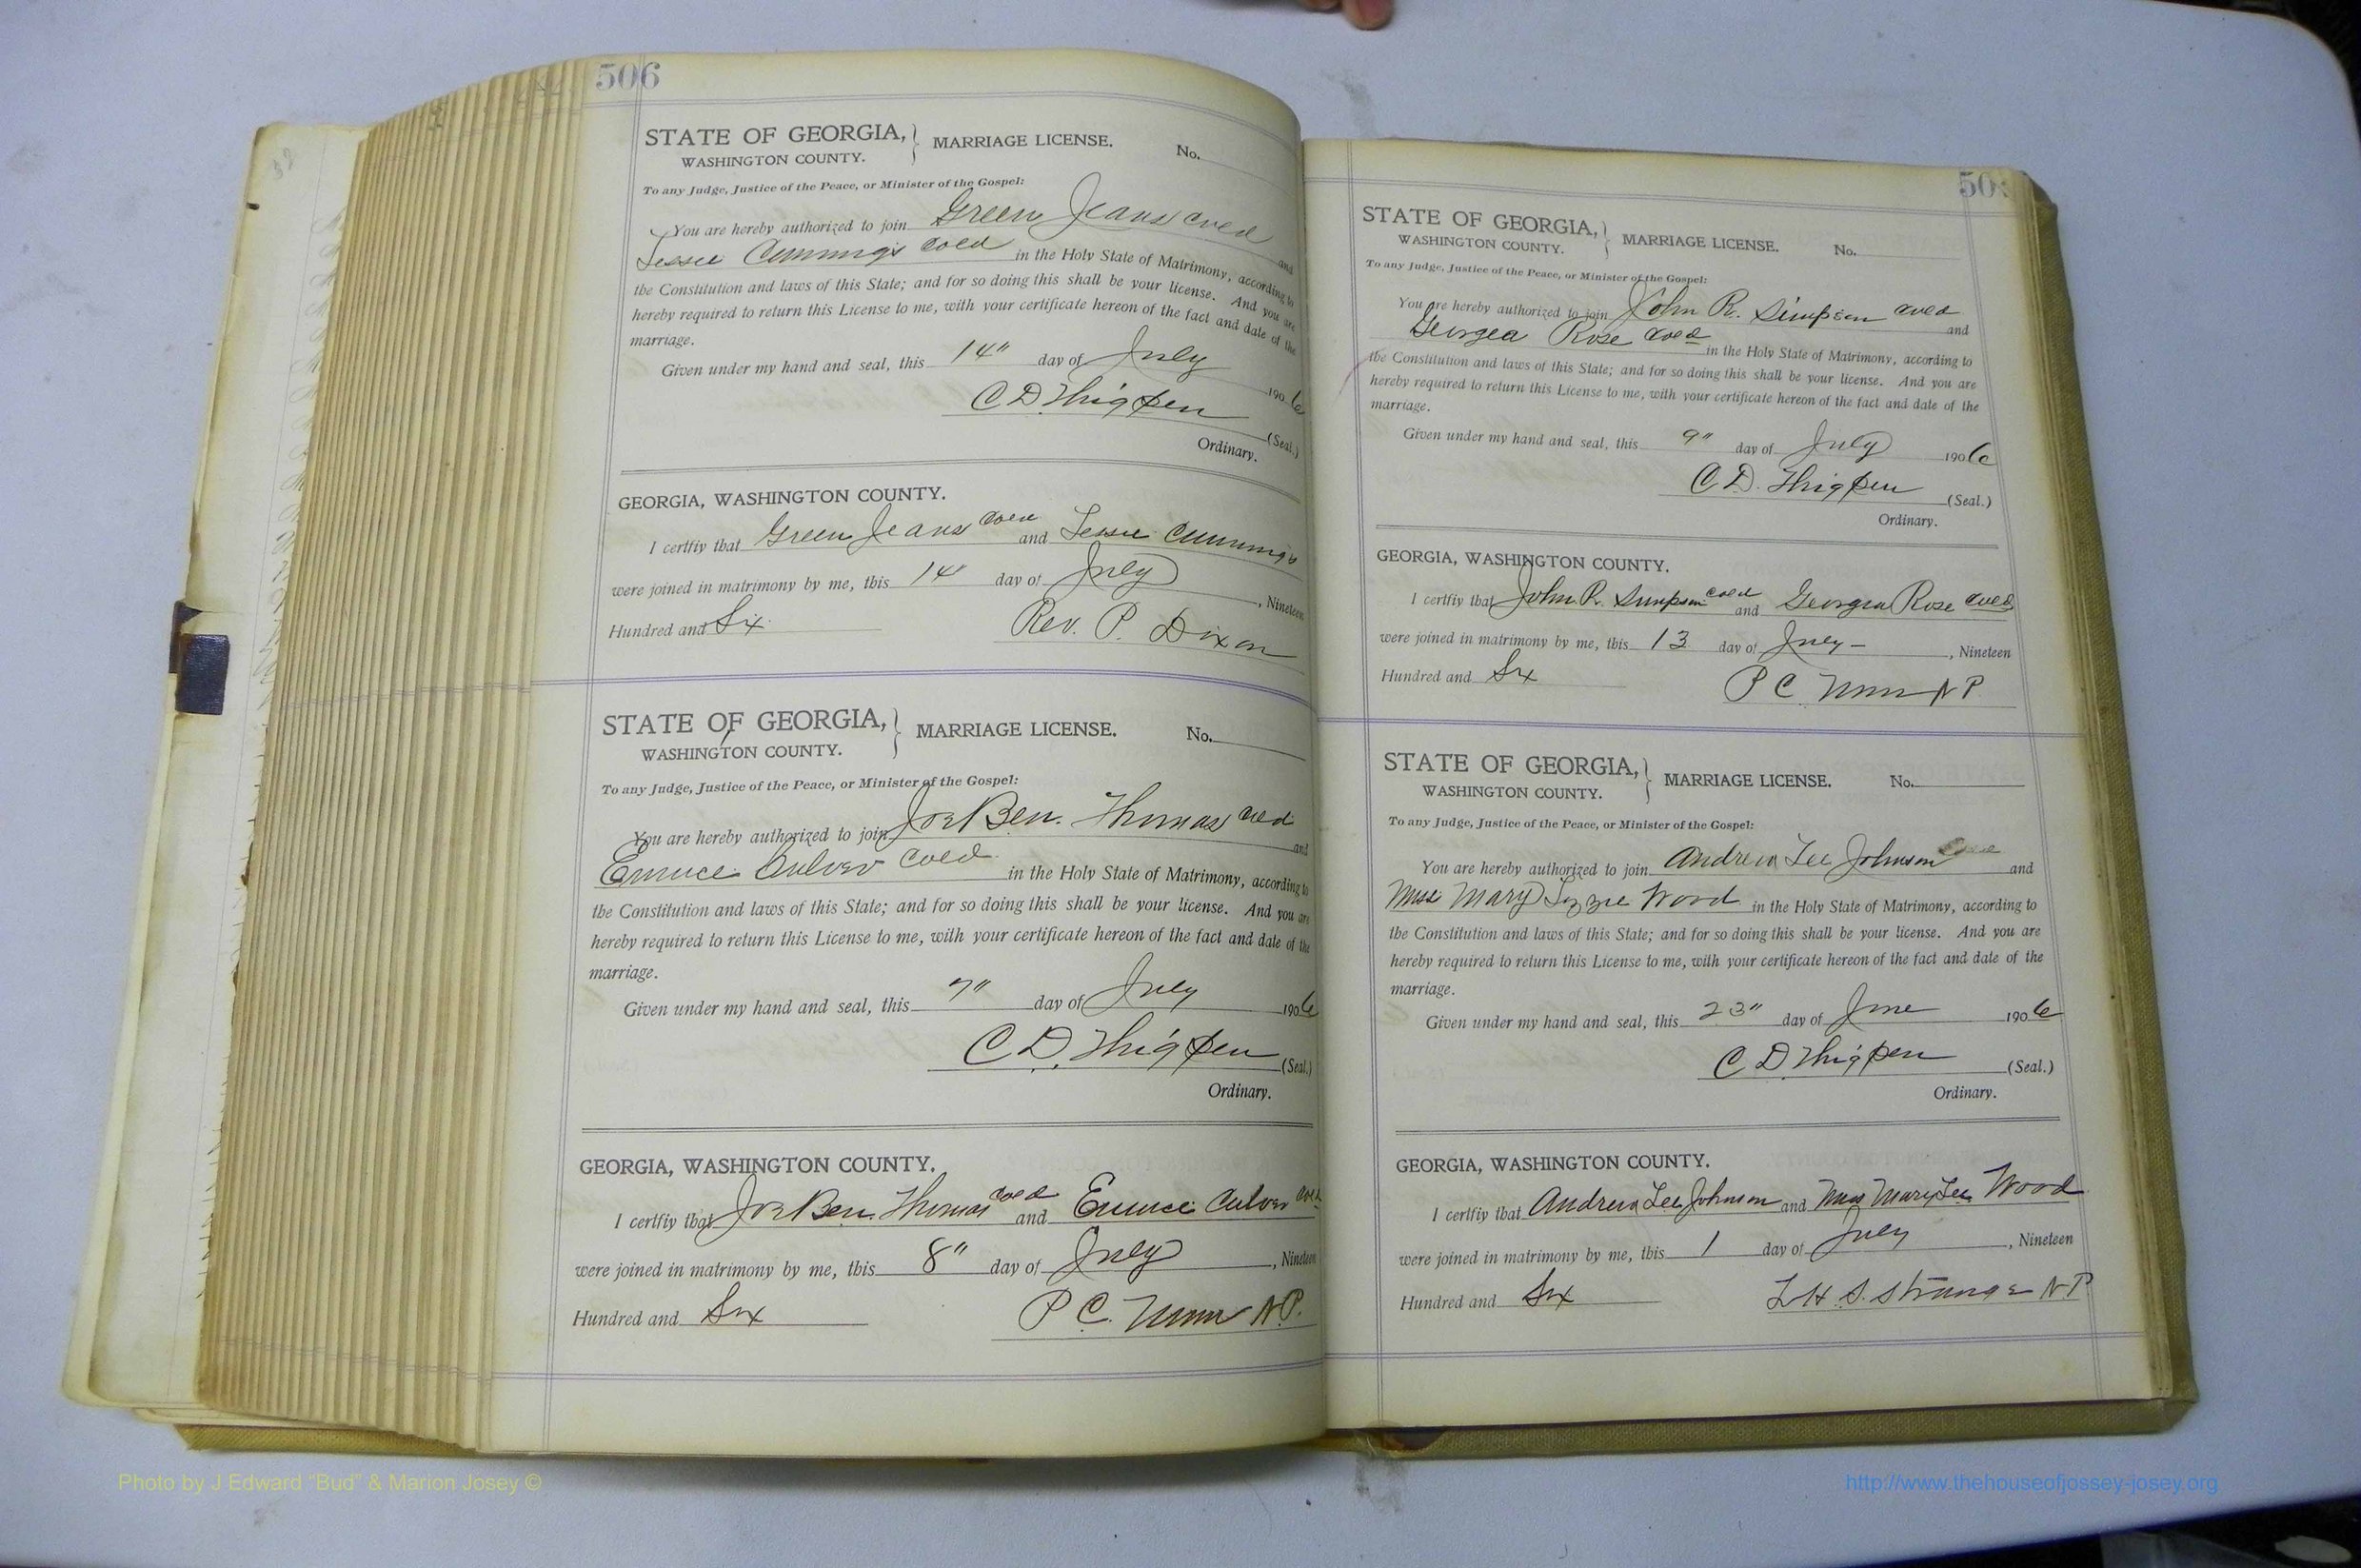 506
STATE OF GEORGIA, MARRIAGE LICENSE. No.
WASHINGTON COUNTY.
To any Judge, Justice of the Peace, or Minister of the Gospel:
You are hereby authorized to join Green Jeans Cold and
Jessie Cummings Cold in the Holy State of Matrimony, according to
the Constitution and laws of this State; and for so doing this shall be your license. And you are
hereby required to return this License to me, with your certificate hereon of the fact and date of the
marriage.
Given under my hand and seal, this 14" day of July 1906
C D Thigpen (Seal.)
Ordinary.
GEORGIA, WASHINGTON COUNTY.
I certfiy that Green Jeans Cold and Jessie Cummings
were joined in matrimony by me, this 14" day of July, Nineteen
Hundred and Six Rev. P. Dixon
STATE OF GEORGIA, MARRIAGE LICENSE. No.
WASHINGTON COUNTY.
To any Judge, Justice of the Peace, or Minister of the Gospel:
You are hereby authorized to join Joe Ben. Thomas Cold and
Eunice Culver Cold in the Holy State of Matrimony, according to
the Constitution and laws of this State; and for so doing this shall be your license. And you are
hereby required to return this License to me, with your certificate hereon of the fact and date of the
marriage.
Given under my hand and seal, this 7" day of July 1906
C D. Thigpen (Seal.)
Ordinary.
GEORGIA, WASHINGTON COUNTY.
I certfiy that Joe Ben. Thomas Cold and Eunice Culver Cold
were joined in matrimony by me, this 8" day of July, Nineteen
Hundred and Six P. C. Nunn N.P.
50
STATE OF GEORGIA, MARRIAGE LICENSE. No.
WASHINGTON COUNTY.
To any Judge, Justice of the Peace, or Minister of the Gospel:
You are hereby authorized to join John R. Simpson Cold and
Georgea Rose Cold in the Holy State of Matrimony, according to
the Constitution and laws of this State; and for so doing this shall be your license. And you are
hereby required to return this License to me, with your certificate hereon of the fact and date of the
marriage.
Given under my hand and seal, this 9" day of July 1906
C D. Thigpen (Seal.)
Ordinary.
GEORGIA, WASHINGTON COUNTY.
I certfiy that John R. Simpson Cold and Georgia Rose Cold
were joined in matrimony by me, this 13 day of July -, Nineteen
Hundred and Six P C. Nunn N P
STATE OF GEORGIA, MARRIAGE LICENSE. No.
WASHINGTON COUNTY.
To any Judge, Justice of the Peace, or Minister of the Gospel:
You are hereby authorized to join Andrew Lee Johnson and
Miss Mary Lizzie Wood in the Holy State of Matrimony, according to
the Constitution and laws of this State; and for so doing this shall be your license. And you are
hereby required to return this License to me, with your certificate hereon of the fact and date of the
marriage.
Given under my hand and seal, this 23" day of June 1906
C D Thigpen (Seal.)
Ordinary.
GEORGIA, WASHINGTON COUNTY.
I certfiy that Andrew Lee Johnson and Miss Mary Lee Wood
were joined in matrimony by me, this 1 day of July, Nineteen
Hundred and Six L H S. Strange N P
Photo by J Edward "Bud" & Marion Josey ©
http://www.thehouseofjossey-josey.org